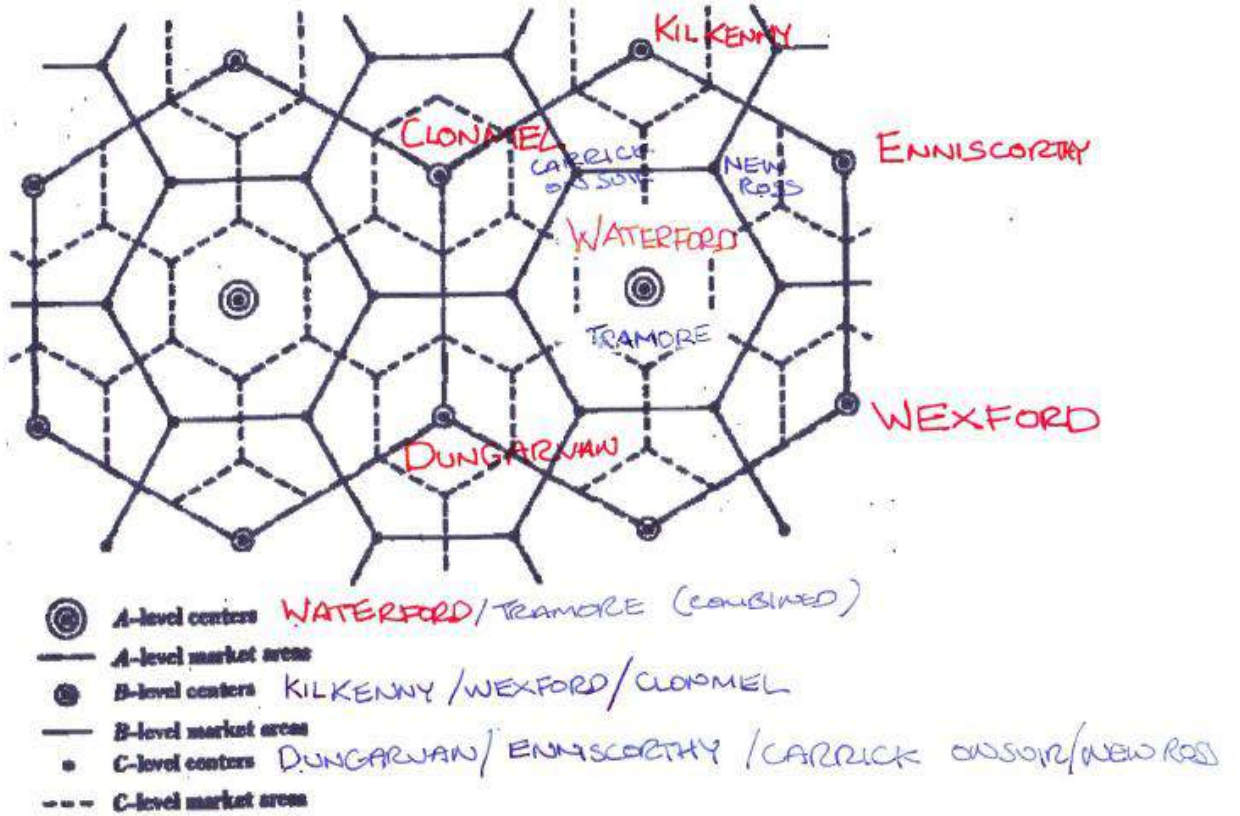 KILKENNY
CLONMEL
ENNISCORTHY
CARRICK
ON SUIR
NEW
ROSS
WATERFORD
TRAMORE
WEXFORD
DUNGARVAN
A-level centers WATERFORD/TRAMORE (COMBINED)
A-level market areas
B-level centers KILKENNY/WEXFORD/CLONMEL
B-level market areas
C-level centers DUNGARVAN/ENNISCORTHY/CARRICK ON SUIR/NEW ROSS
C-level market areas